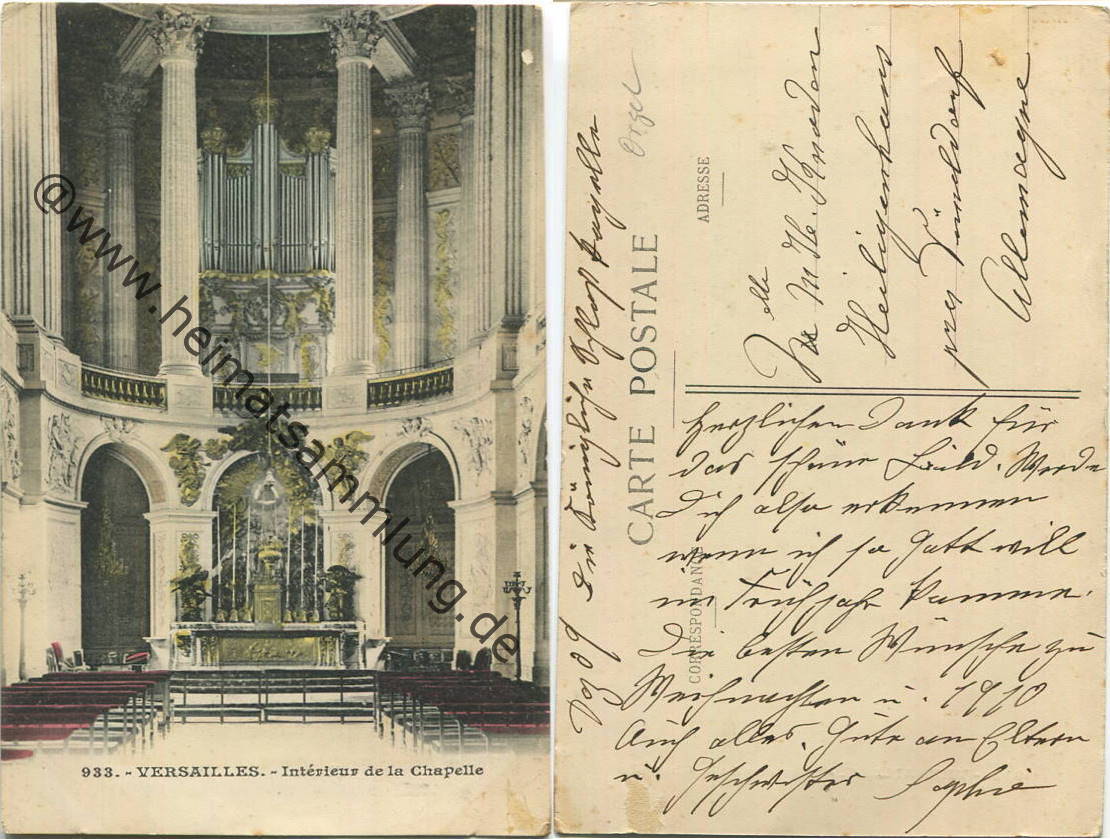 933. - VERSAILLES. - Intérieur de la Chapelle
@www.heimatsammlung.de
CARTE POSTALE
CORRESPONDANCE
ADRESSE
Orgel
Dz 09 Die Königliche Schloß
elle
M
Heiligenhaus
pres
Allemagne
Herzlichen Dank für
das schöne Bild. Werde
Dich also erkennen
wenn ich so Gott will
im Frühjahr komme.
Die besten Wünsche zu
Weihnachten u. 1910
Auch alles Gute an Eltern
u. Geschwister Sophie